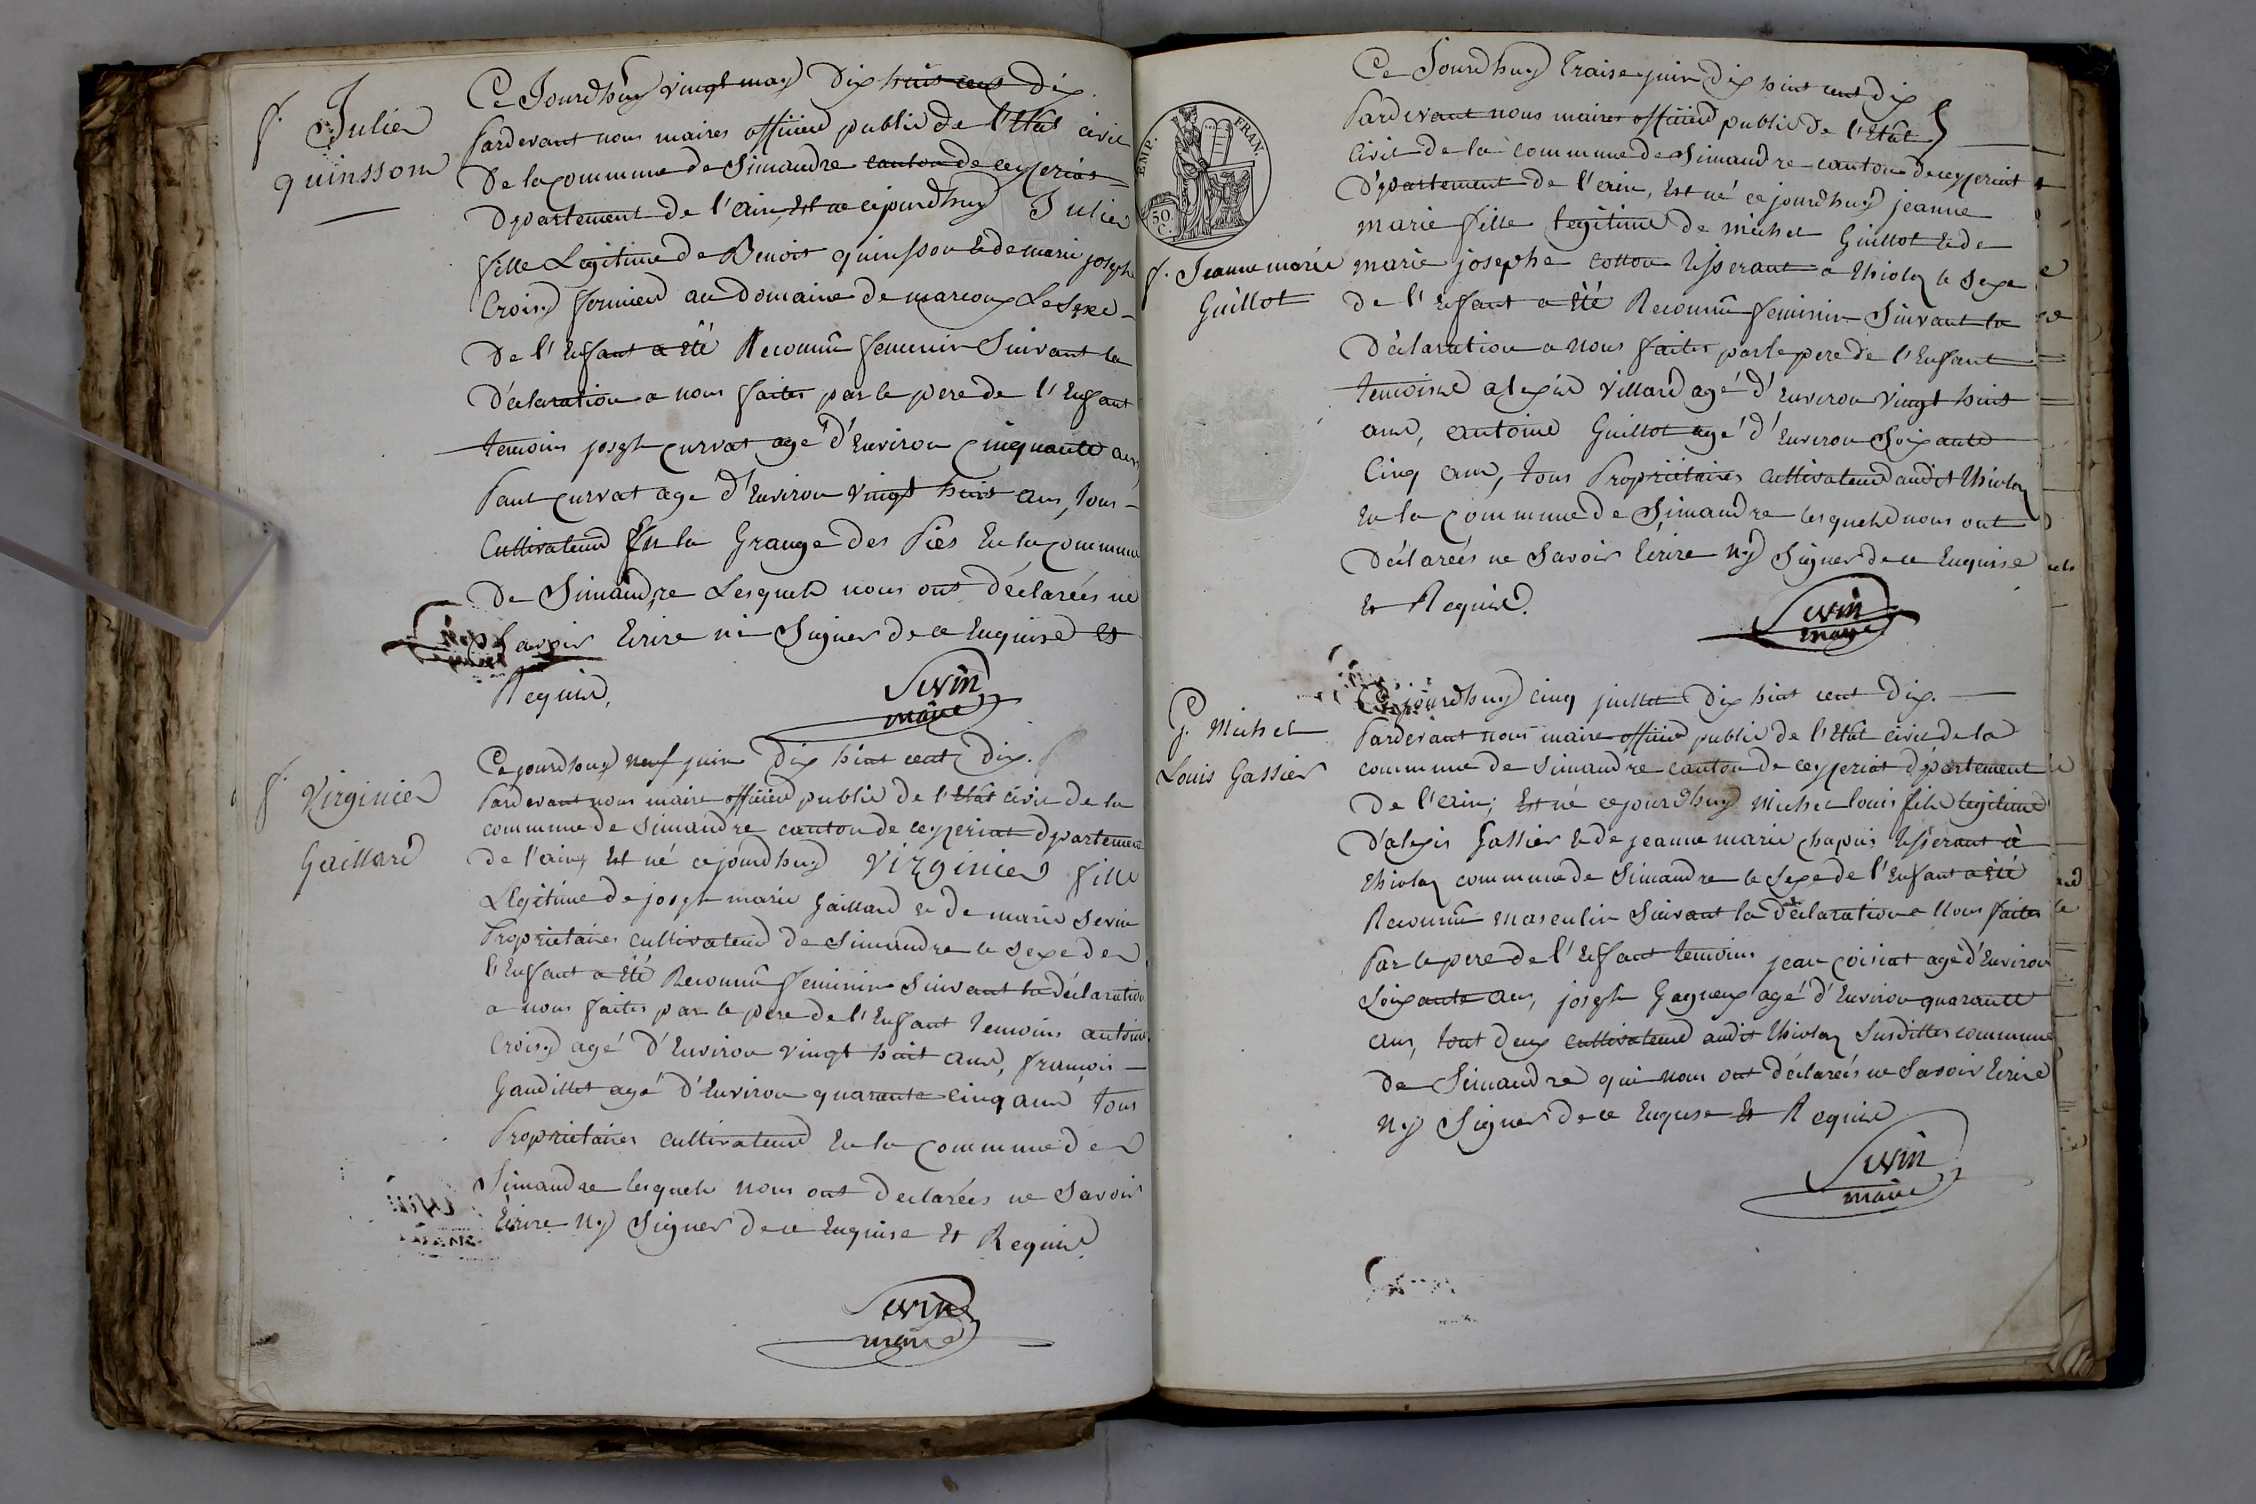 f. Julie
quinsson
Ce Jourdhuy vingt may Dix huit cens Dix
Pardevant nous maires officier public de l'Etat civil
De la commune de Simandre canton de ceyzeriat
Dpartement de l'ain, Est né cejourdhuy Julie
fille Légitime de Benoit quinsson & de marie josephe
Croisy fermier au Domaine de marcoux Le Sexe
De l'Enfant a Eté Reconnû femenin Suivant la
Déclaration a nous faites par le pere de l'Enfant
temoins joseph curvat agé d'Environ Cinquante ans
Paul curvat agé d'Environ vingt huit ans, tous
Cultivateurs En la Grange des Piés En la commune
De Simandre Lesquels nous ont déclareés ne
Savoir Ecrire ni Signer de ce Enquise Et
Requise,
Sevin
maire
f. Virginie
Gaillard
Cejourdhuy neuf juin Dix huit cent Dix.
Pardevant nous maire officier public de l'Etat civil de la
commune de Simandre canton de ceyzeriat dpartement
de l'ain, Est né cejourdhuy Virginie fille
Légitime de joseph marie Gaillard & de marie Sevin
Proprietaires cultivateurs de Simandre le Sexe de
l'Enfant a Eté Reconnû feminin Suivant la déclaration
a nous faites par le pere de l'Enfant temoins antoine
Croisy agé d'Environ vingt huit ans, françois
Gaudillet agé d'Environ quarante cinq ans tous
Proprietaires cultivateurs En la commune de
Simandre lesquels nous ont declareés ne Savoir
Ecrire ny Signer de ce Enquise Et Requise.
Sevin
maire
EMP. FRAN.
50. C.
f. Jeanne marie
Guillot
Ce Jourdhuy traise juin dix huit cent dix
Pardevant nous maires officier public de l'Etat
civil de la commune de Simandre canton de ceyzeriat
Dpartement de l'ain, Est né cejourdhuy jeanne
marie fille legitime de michel Guillot & de
marie josephe cotton tisserant a thioley le Sexe
de l'Enfant a Eté Reconnû feminin Suivant la
Déclaration a nous faites par le pere de l'Enfant
temoins alexis Villard agé d'Environ vingt huit
ans, antoine Guillot agé d'Environ Soixante
Cinq ans, tous Proprietaires cultivateurs audit thioley
En la commune de Simandre lesquels nous ont
Déclareés ne Savoir Ecrire ny Signer de ce Enquise
Et Requise.
Sevin
maire
G. Michel
Louis Gassier
Cejourdhuy cinq juillet Dix huit cent Dix.
Pardevant nous maire officier public de l'Etat civil de la
commune de Simandre canton de ceyzeriat dpartement
de l'ain; Est né cejourdhuy Michel louis fils legitime
d'alexis Gassier & de jeanne marie chapuis tisserant à
thioley commune de Simandre le Sexe de l'Enfant a Eté
Reconnû masculin Suivant la déclaration a Nous faites
Par le pere de l'Enfant temoins jean coisiat agé d'Environ
Soixante ans, joseph Gagneux agé d'Environ quarante
ans, tout deux cultivateurs audit thioley Susditte commune
de Simandre qui nous ont déclareés ne Savoir Ecrire
ny Signer de ce Enquise Et Requise
Sevin
maire